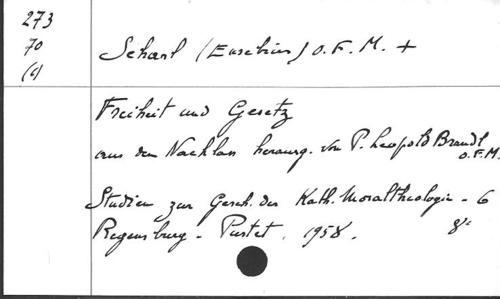 273
70
(c)
Scharl (Eusebius) O.F.M. +
Freiheit und Gesetz
aus dem Nachlass herausg. von P. Leopold Brandl
O.F.M.
Studien zur Gesch. der Kath. Moraltheologie - 6
Regensburg - Pustet. 1958.
8°